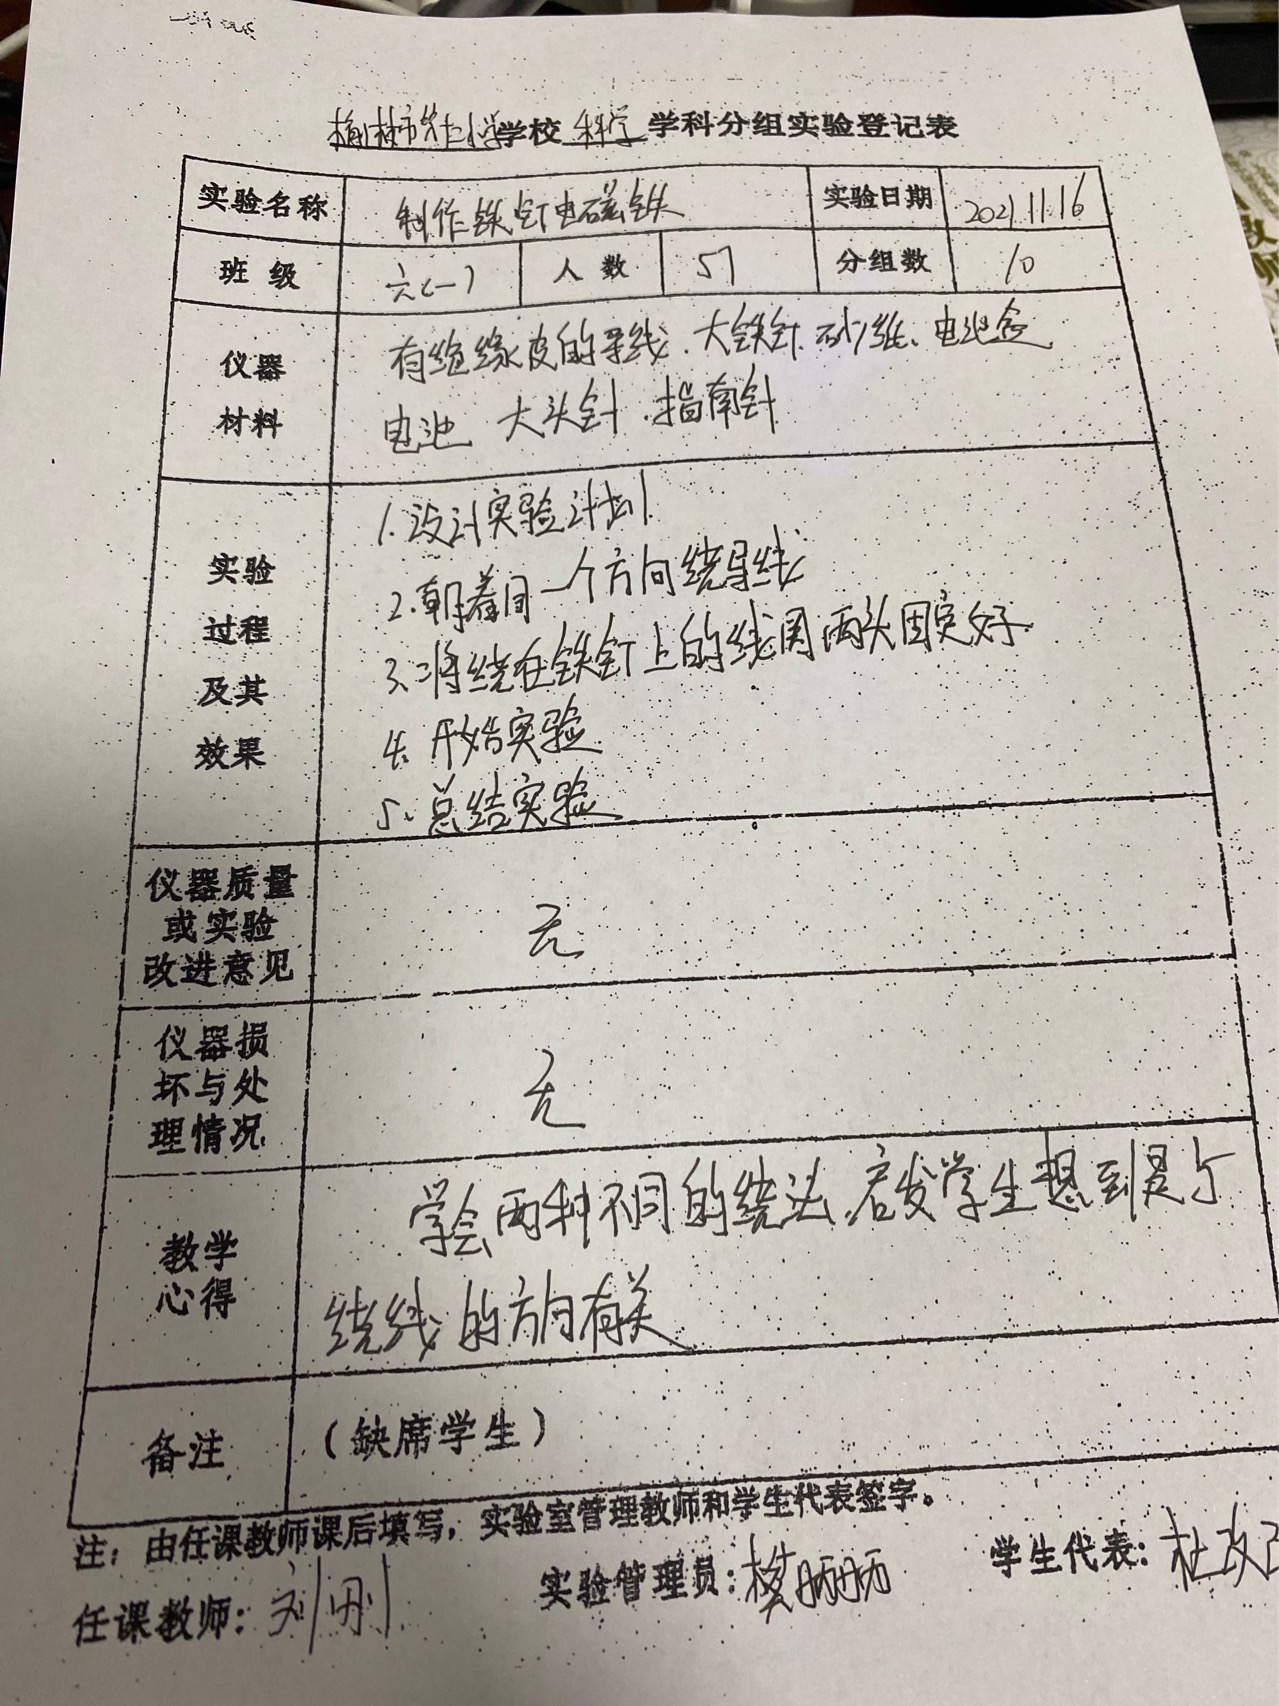 榆林市 学校 科学 学科分组实验登记表
实验名称 制作铁钉电磁铁 实验日期 2021.11.16
班级 六(一) 人数 57 分组数 10
仪器材料
有绝缘皮的导线、大铁钉、砂纸、电池盒
电池 大头针、指南针
实验过程及其效果
1.设计实验计划
2.朝着同一个方向绕导线
3、将绕在铁钉上的线圈两头固定好
4、开始实验
5、总结实验
仪器质量
或实验 无
改进意见
仪器损
坏与处 无
理情况
教学心得
学会两种不同的绕法、启发学生想到是与
绕线的方向有关
备注 (缺席学生)
注：由任课教师课后填写，实验室管理教师和学生代表签字。
任课教师：刘刚 实验管理员：樊炳炳 学生代表：杜